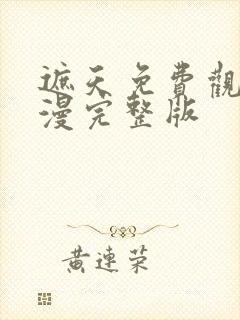 遮天免費觀
漫完整版
黃連荣